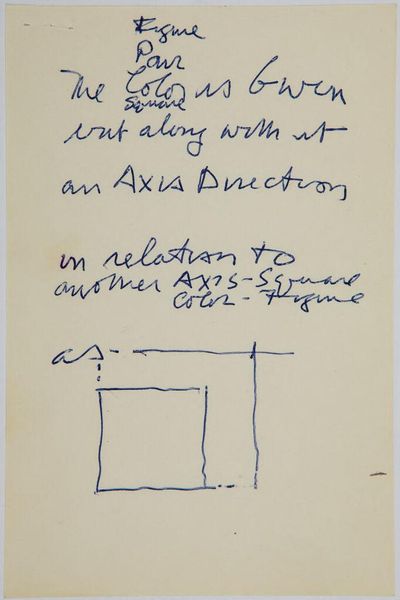 Figure
Pair
The Color is Given
Square
but along with it
an Axis Direction
in relation to
another Axis-Square
Color-Figure
as